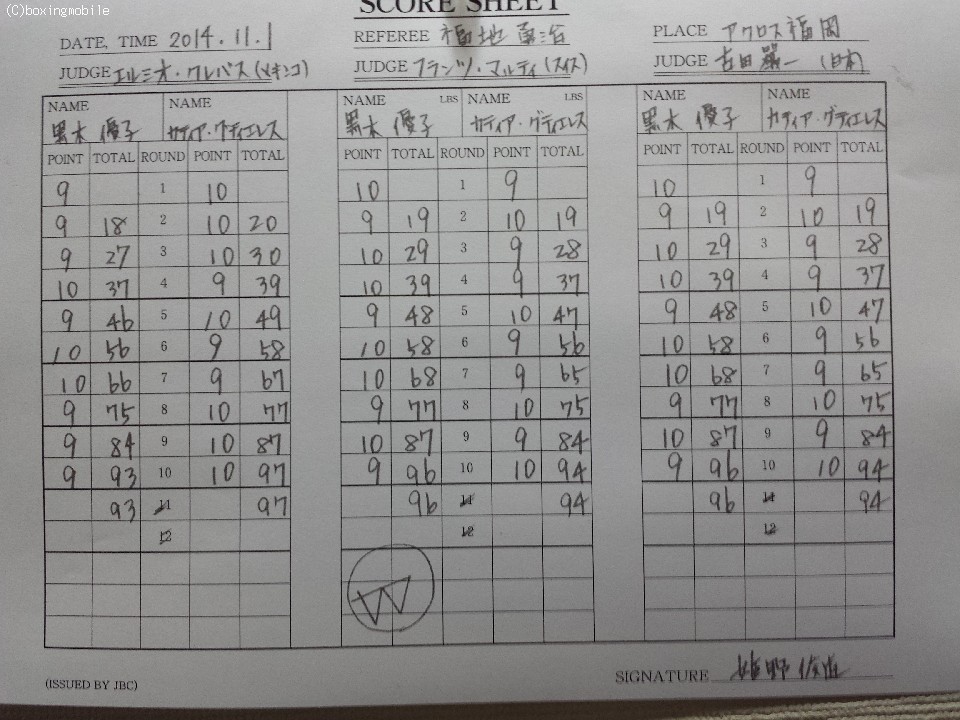 (C)boxingmobile
SCORE SHEET
DATE, TIME 2014.11.1 REFEREE 福地 勇治 PLACE アクロス福岡
JUDGE エルミオ・クレバス(メキシコ) JUDGE フランツ・マルティ(スイス) JUDGE 吉田 一(日本)
NAME NAME NAME LBS NAME LBS NAME NAME
黒木 優子 カティア・グティエレス 黒木 優子 カティア・グティエレス 黒木 優子 カティア・グティエレス
POINT TOTAL ROUND POINT TOTAL POINT TOTAL ROUND POINT TOTAL POINT TOTAL ROUND POINT TOTAL
9 1 10 10 1 9 10 1 9
9 18 2 10 20 9 19 2 10 19 9 19 2 10 19
9 27 3 10 30 10 29 3 9 28 10 29 3 9 28
10 37 4 9 39 10 39 4 9 37 10 39 4 9 37
9 46 5 10 49 9 48 5 10 47 9 48 5 10 47
10 56 6 9 58 10 58 6 9 56 10 58 6 9 56
10 66 7 9 67 10 68 7 9 65 10 68 7 9 65
9 75 8 10 77 9 77 8 10 75 9 77 8 10 75
9 84 9 10 87 10 87 9 9 84 10 87 9 9 84
9 93 10 10 97 9 96 10 10 94 9 96 10 10 94
93 11 97 96 11 94 96 11 94
12 12 12
W
(ISSUED BY JBC) SIGNATURE